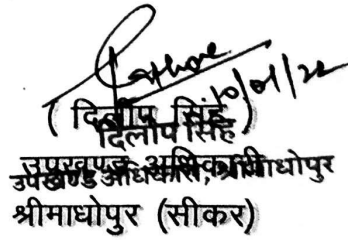 10/01/22
( दिलीप सिंह )
दिलीप सिंह
उपखण्ड अधिकारी
उपखण्ड अधिकारी, श्रीमाधोपुर
श्रीमाधोपुर (सीकर)